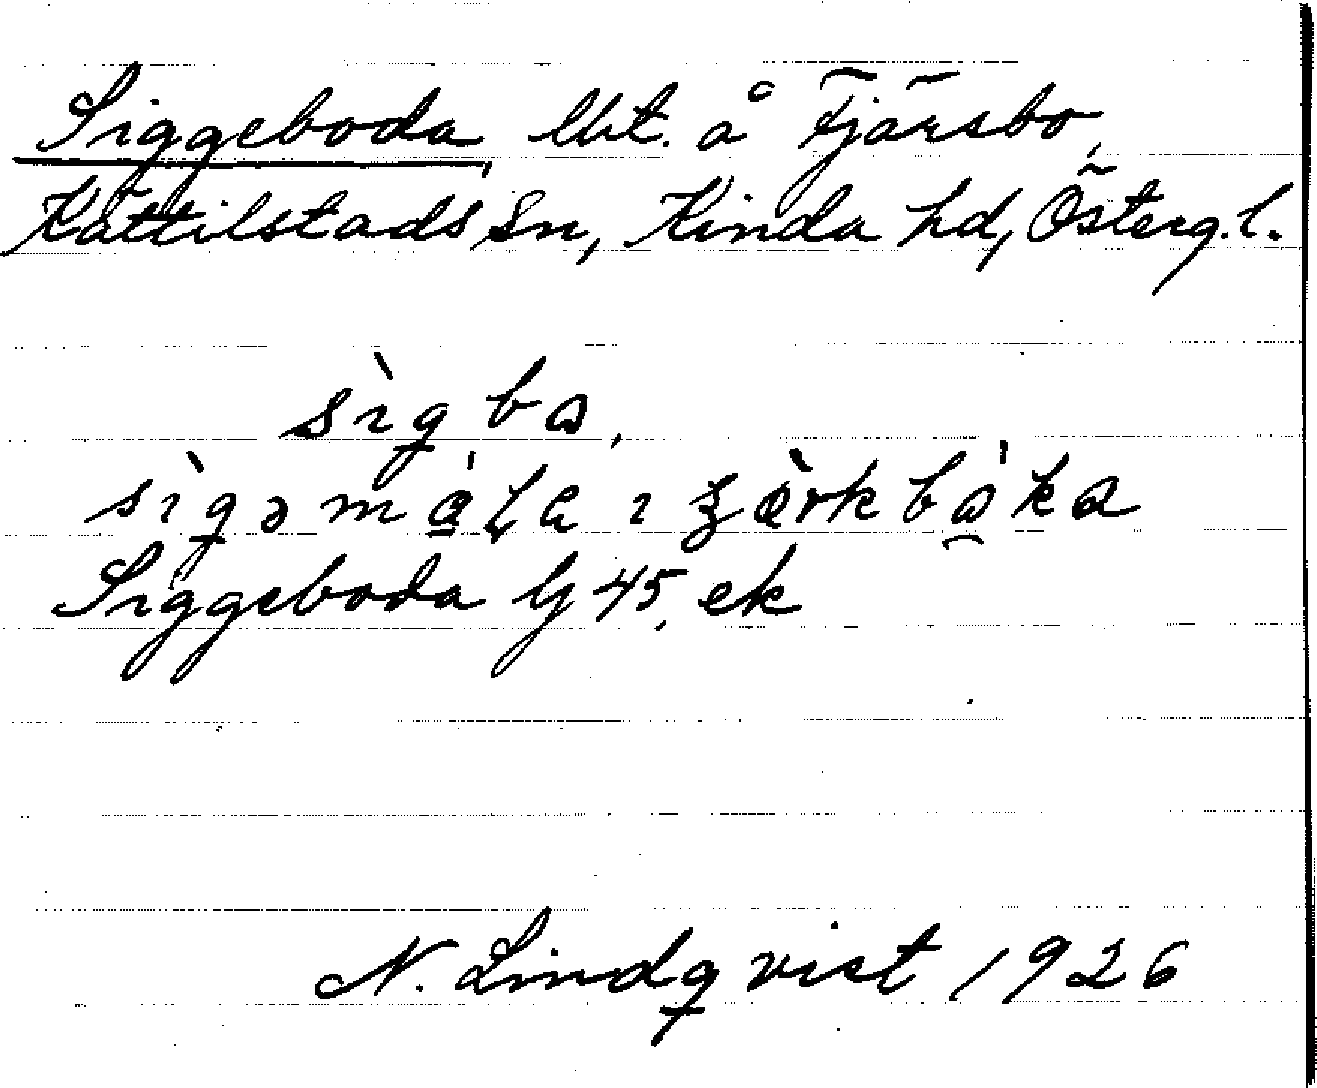 Siggeboda, lht. å Fjärsbo,
Kättilstads sn, Kinda hd, Österg.l.
sìgba,
sìgəmå̀la ı
Siggeboda G 45, ek
N. Lindqvist 1926